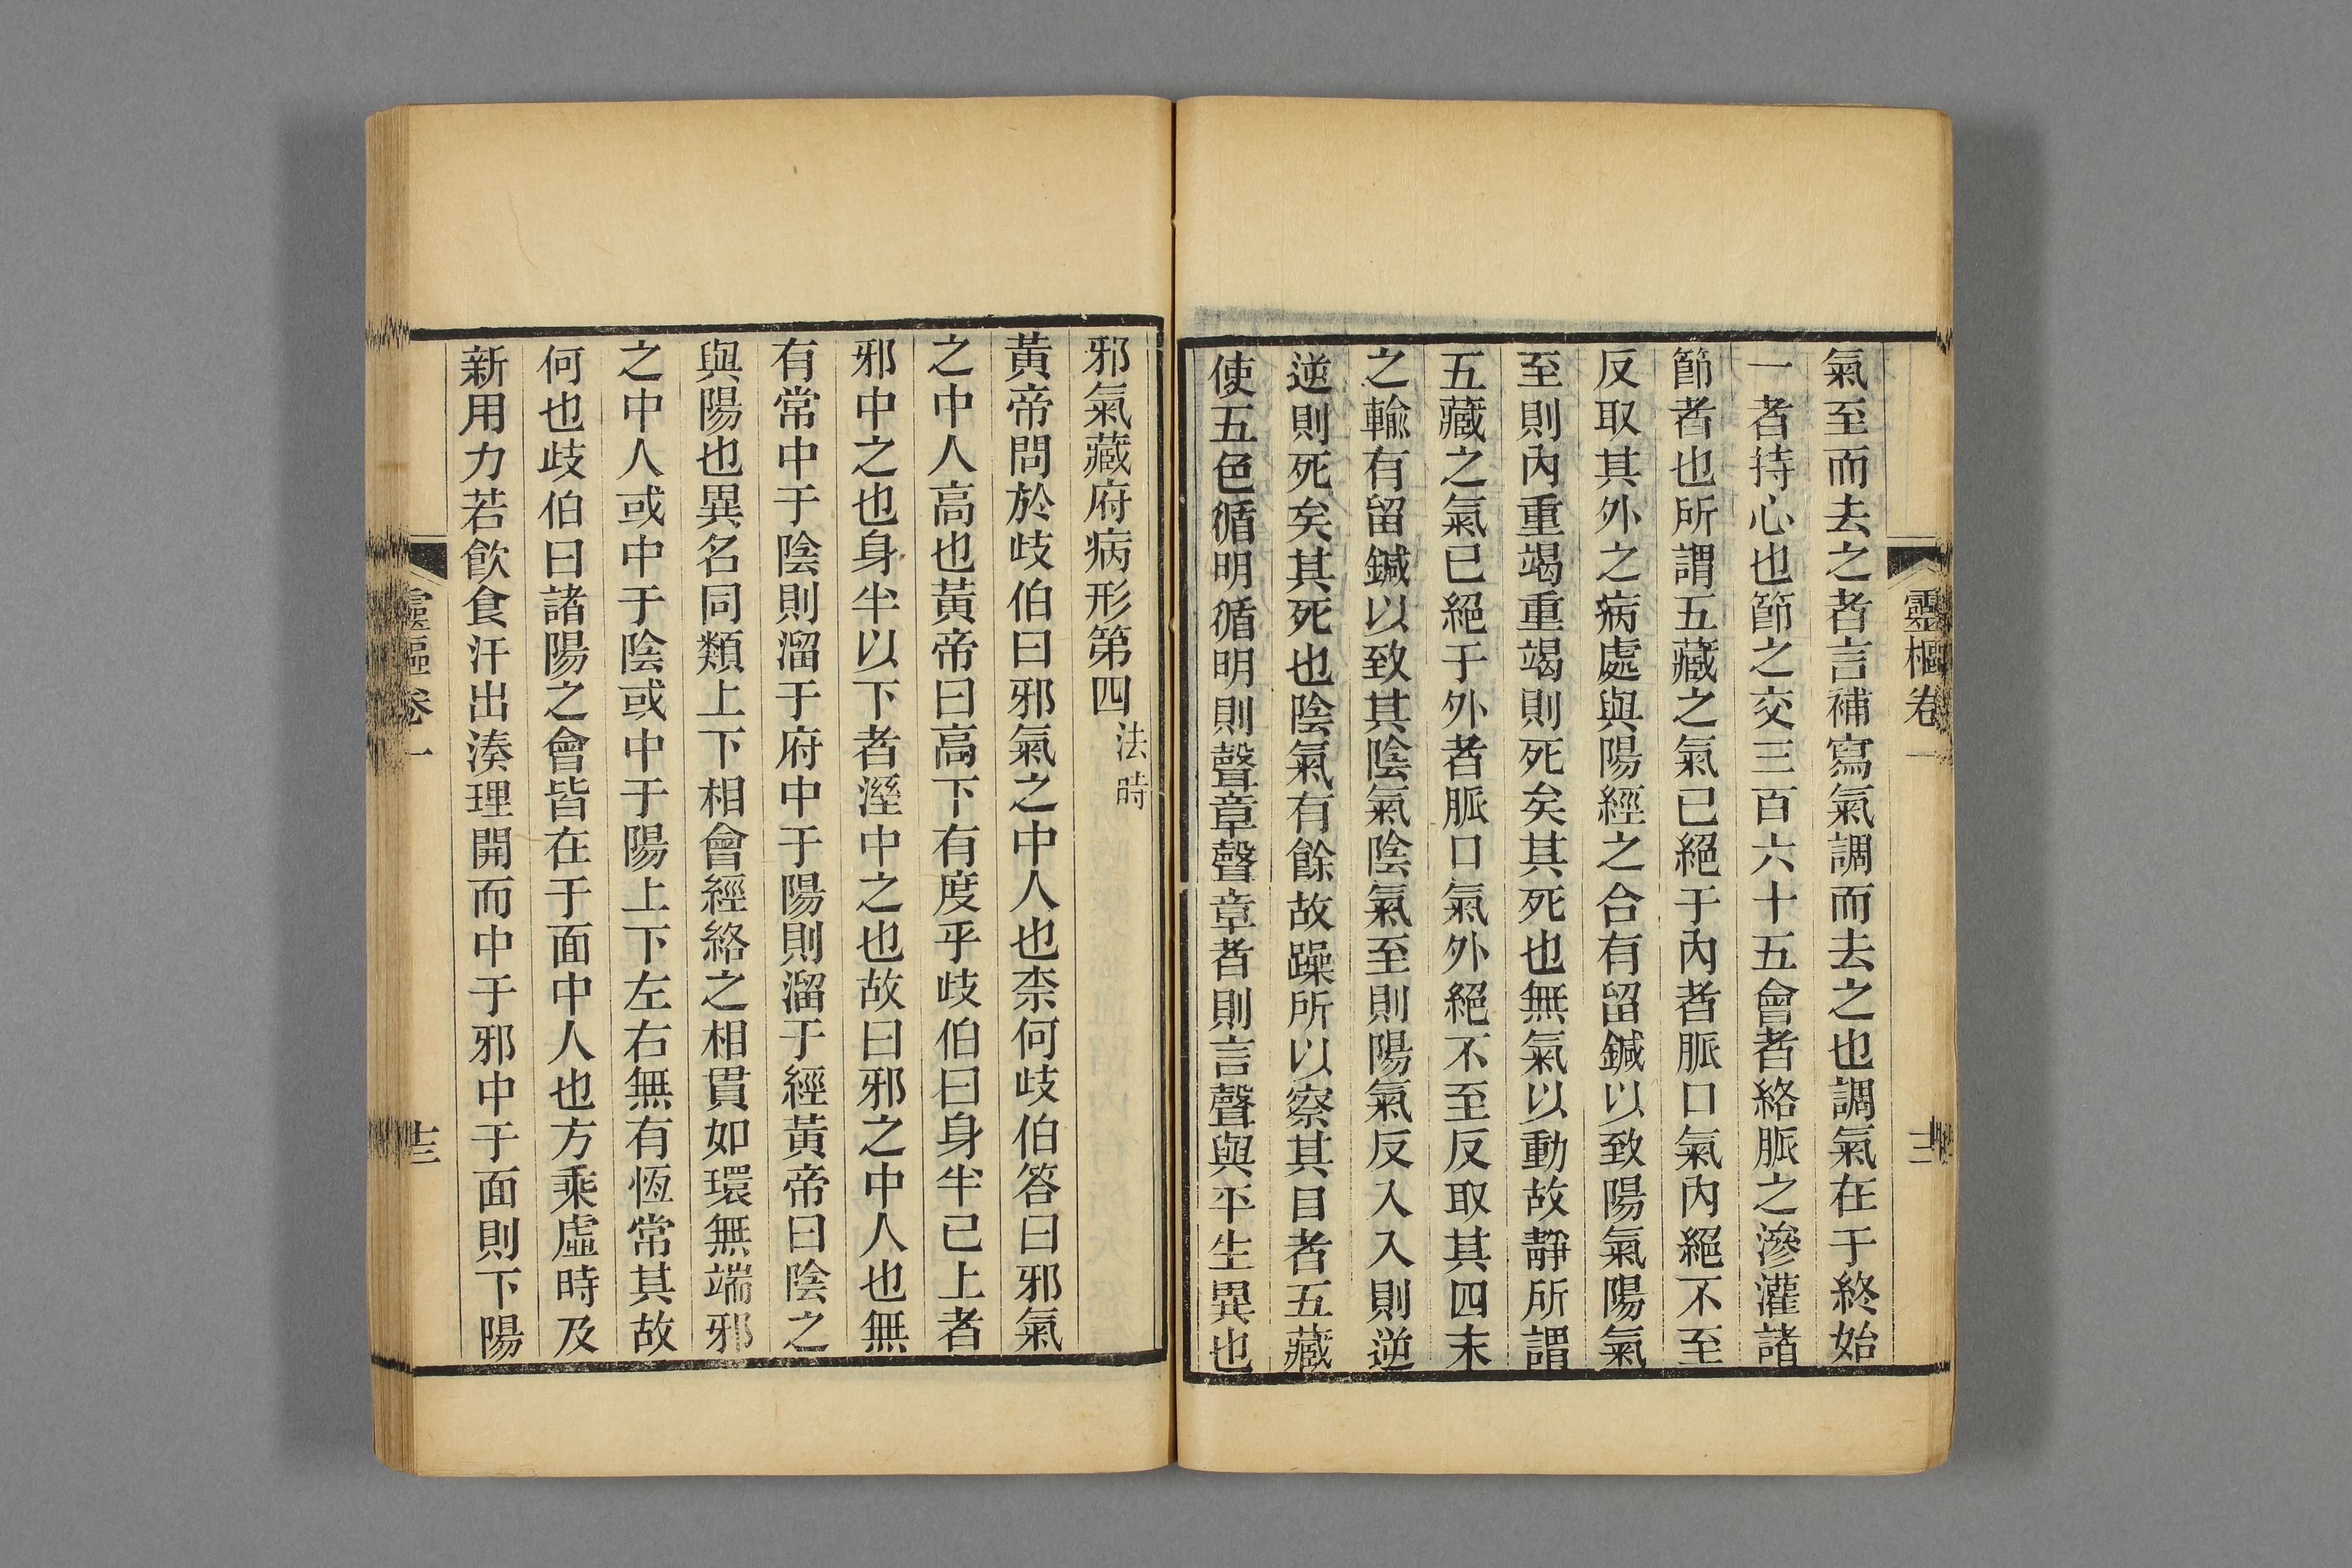 靈樞卷一
十二
氣至而去之者言補寫氣調而去之也調氣在于終始
一者持心也節之交三百六十五會者絡脈之滲灌諸
節者也所謂五藏之氣已絕于內者脈口氣內絕不至
反取其外之病處與陽經之合有留鍼以致陽氣陽氣
至則內重竭重竭則死矣其死也無氣以動故靜所謂
五藏之氣已絕于外者脈口氣外絕不至反取其四末
之輸有留鍼以致其陰氣陰氣至則陽氣反入入則逆
逆則死矣其死也陰氣有餘故躁所以察其目者五藏
使五色循明循明則聲章聲章者則言聲與平生異也
邪氣藏府病形第四 法時
黃帝問於歧伯曰邪氣之中人也柰何歧伯答曰邪氣
之中人高也黃帝曰高下有度乎歧伯曰身半已上者
邪中之也身半以下者溼中之也故曰邪之中人也無
有常中于陰則溜于府中于陽則溜于經黃帝曰陰之
與陽也異名同類上下相會經絡之相貫如環無端邪
之中人或中于陰或中于陽上下左右無有恆常其故
何也歧伯曰諸陽之會皆在于面中人也方乘虛時及
新用力若飲食汗出湊理開而中于邪中于面則下陽
靈樞卷一
十三